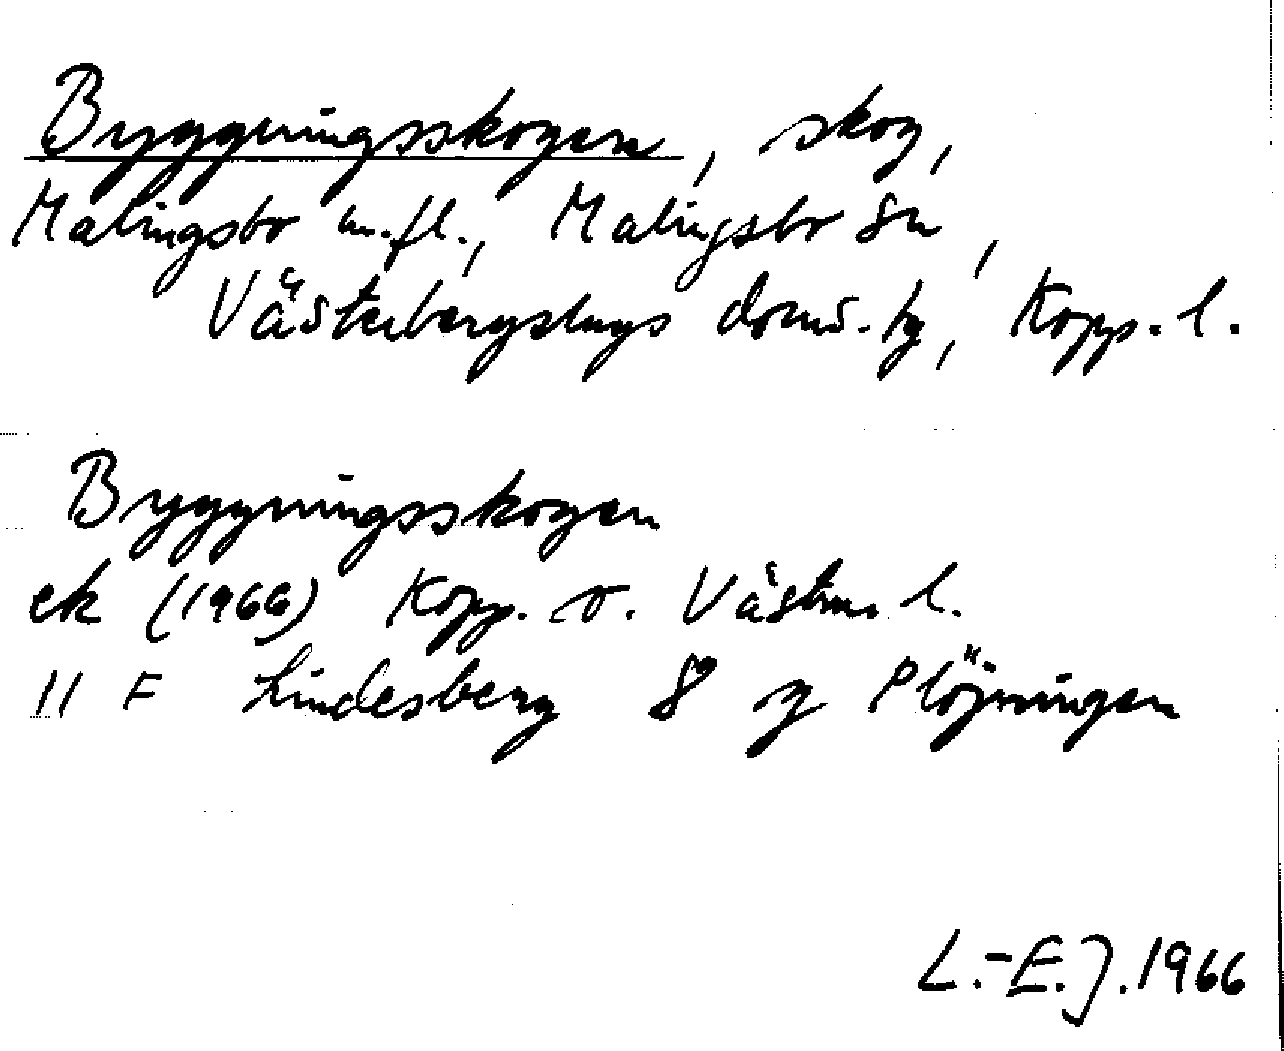 Byggningsskogen, skog,
Malingsbo m.fl., Malingsbo sn,
Västerbergslags doms.-tg, Kopp. l.
Byggningsskogen
ek (1966) Kopp. o. Västm. l.
11 F Lindesberg 8 g Plöjningen
L.-E.J. 1966